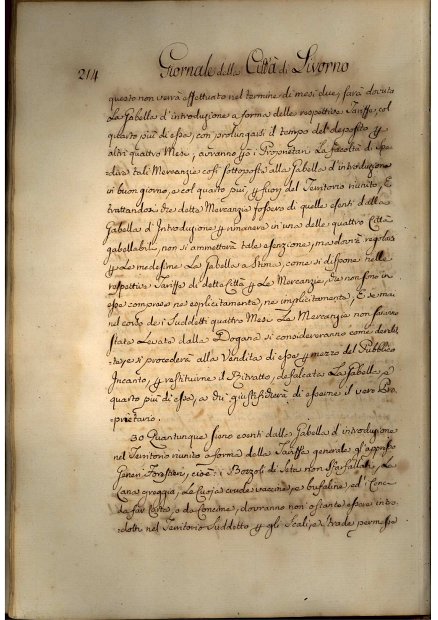 214 Giornale della Città di Livorno
questo non verrà effettuato nel termine di mesi due, sarà dovuta
La Gabella d'introduzione a forma delle respettive Tariffe, col
quarto più di esse, con prolungarsi il tempo del deposito p
altri quattro Mesi, avranno i Proprietari La facoltà di spe-
dire tali Mercanzie così sottoposte alla Gabella d'introduzione
col quarto più, p fuori del Territorio riunito, E
trattandosi che dette Mercanzie fossero di quelle esenti dalla
Gabella d'Introduzione p rimanere in una delle quattro Città
gabellabili, non si ammetterà tale esenzione, ma dovrà
p Le medesime La Gabella a Stima, come si dispone nelle
respettive Tariffe di dette Città p Le Mercanzie, che non sono in
esse comprese ne esplicitamente, ne implicitamente, E se mai
nel corso dei Suddetti quattro Mesi Le Mercanzie non fussero
state Levate dalla Dogana si considereranno come
e si procederà alla Vendita di esse p mezzo del Pubblico
Incanto, p restituirne il Ritratto, defalcata La Gabella e
quarto più di essa, a chi giustificherà di esserne il vero Pro-
prietario.
30 Quantunque siano esenti dalla Gabella d'introduzione
nel Territorio riunito a forma della Tariffa generale gl'appresso
Generi Forestieri, cioè: i Bozzoli di Seta non sfarfallati, La
Lana greggia, Le Cuoja crude vaccine, e bufaline, ed i Cenci
da far Carta, o da Concime, dovranno non ostante essere intro-
dotti nel Territorio Suddetto p gli Scali, e Strade permesse